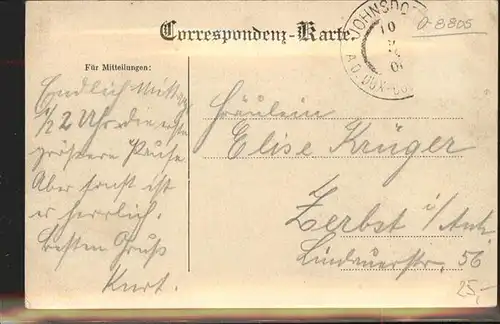 Correspondenz-Karte.
JOHNSDO
A.D. DUX-BO
Q-8805
Für Mitteilungen:
Endlich Mittag
1/2 2 Uhr die erste
grössere Pause
Aber sonst ist
es herrlich.
Besten Gruss
Kurt.
Fräulein
Elise Krüger
Zerbst i/Anh.
Lindauerstr. 56
25,-